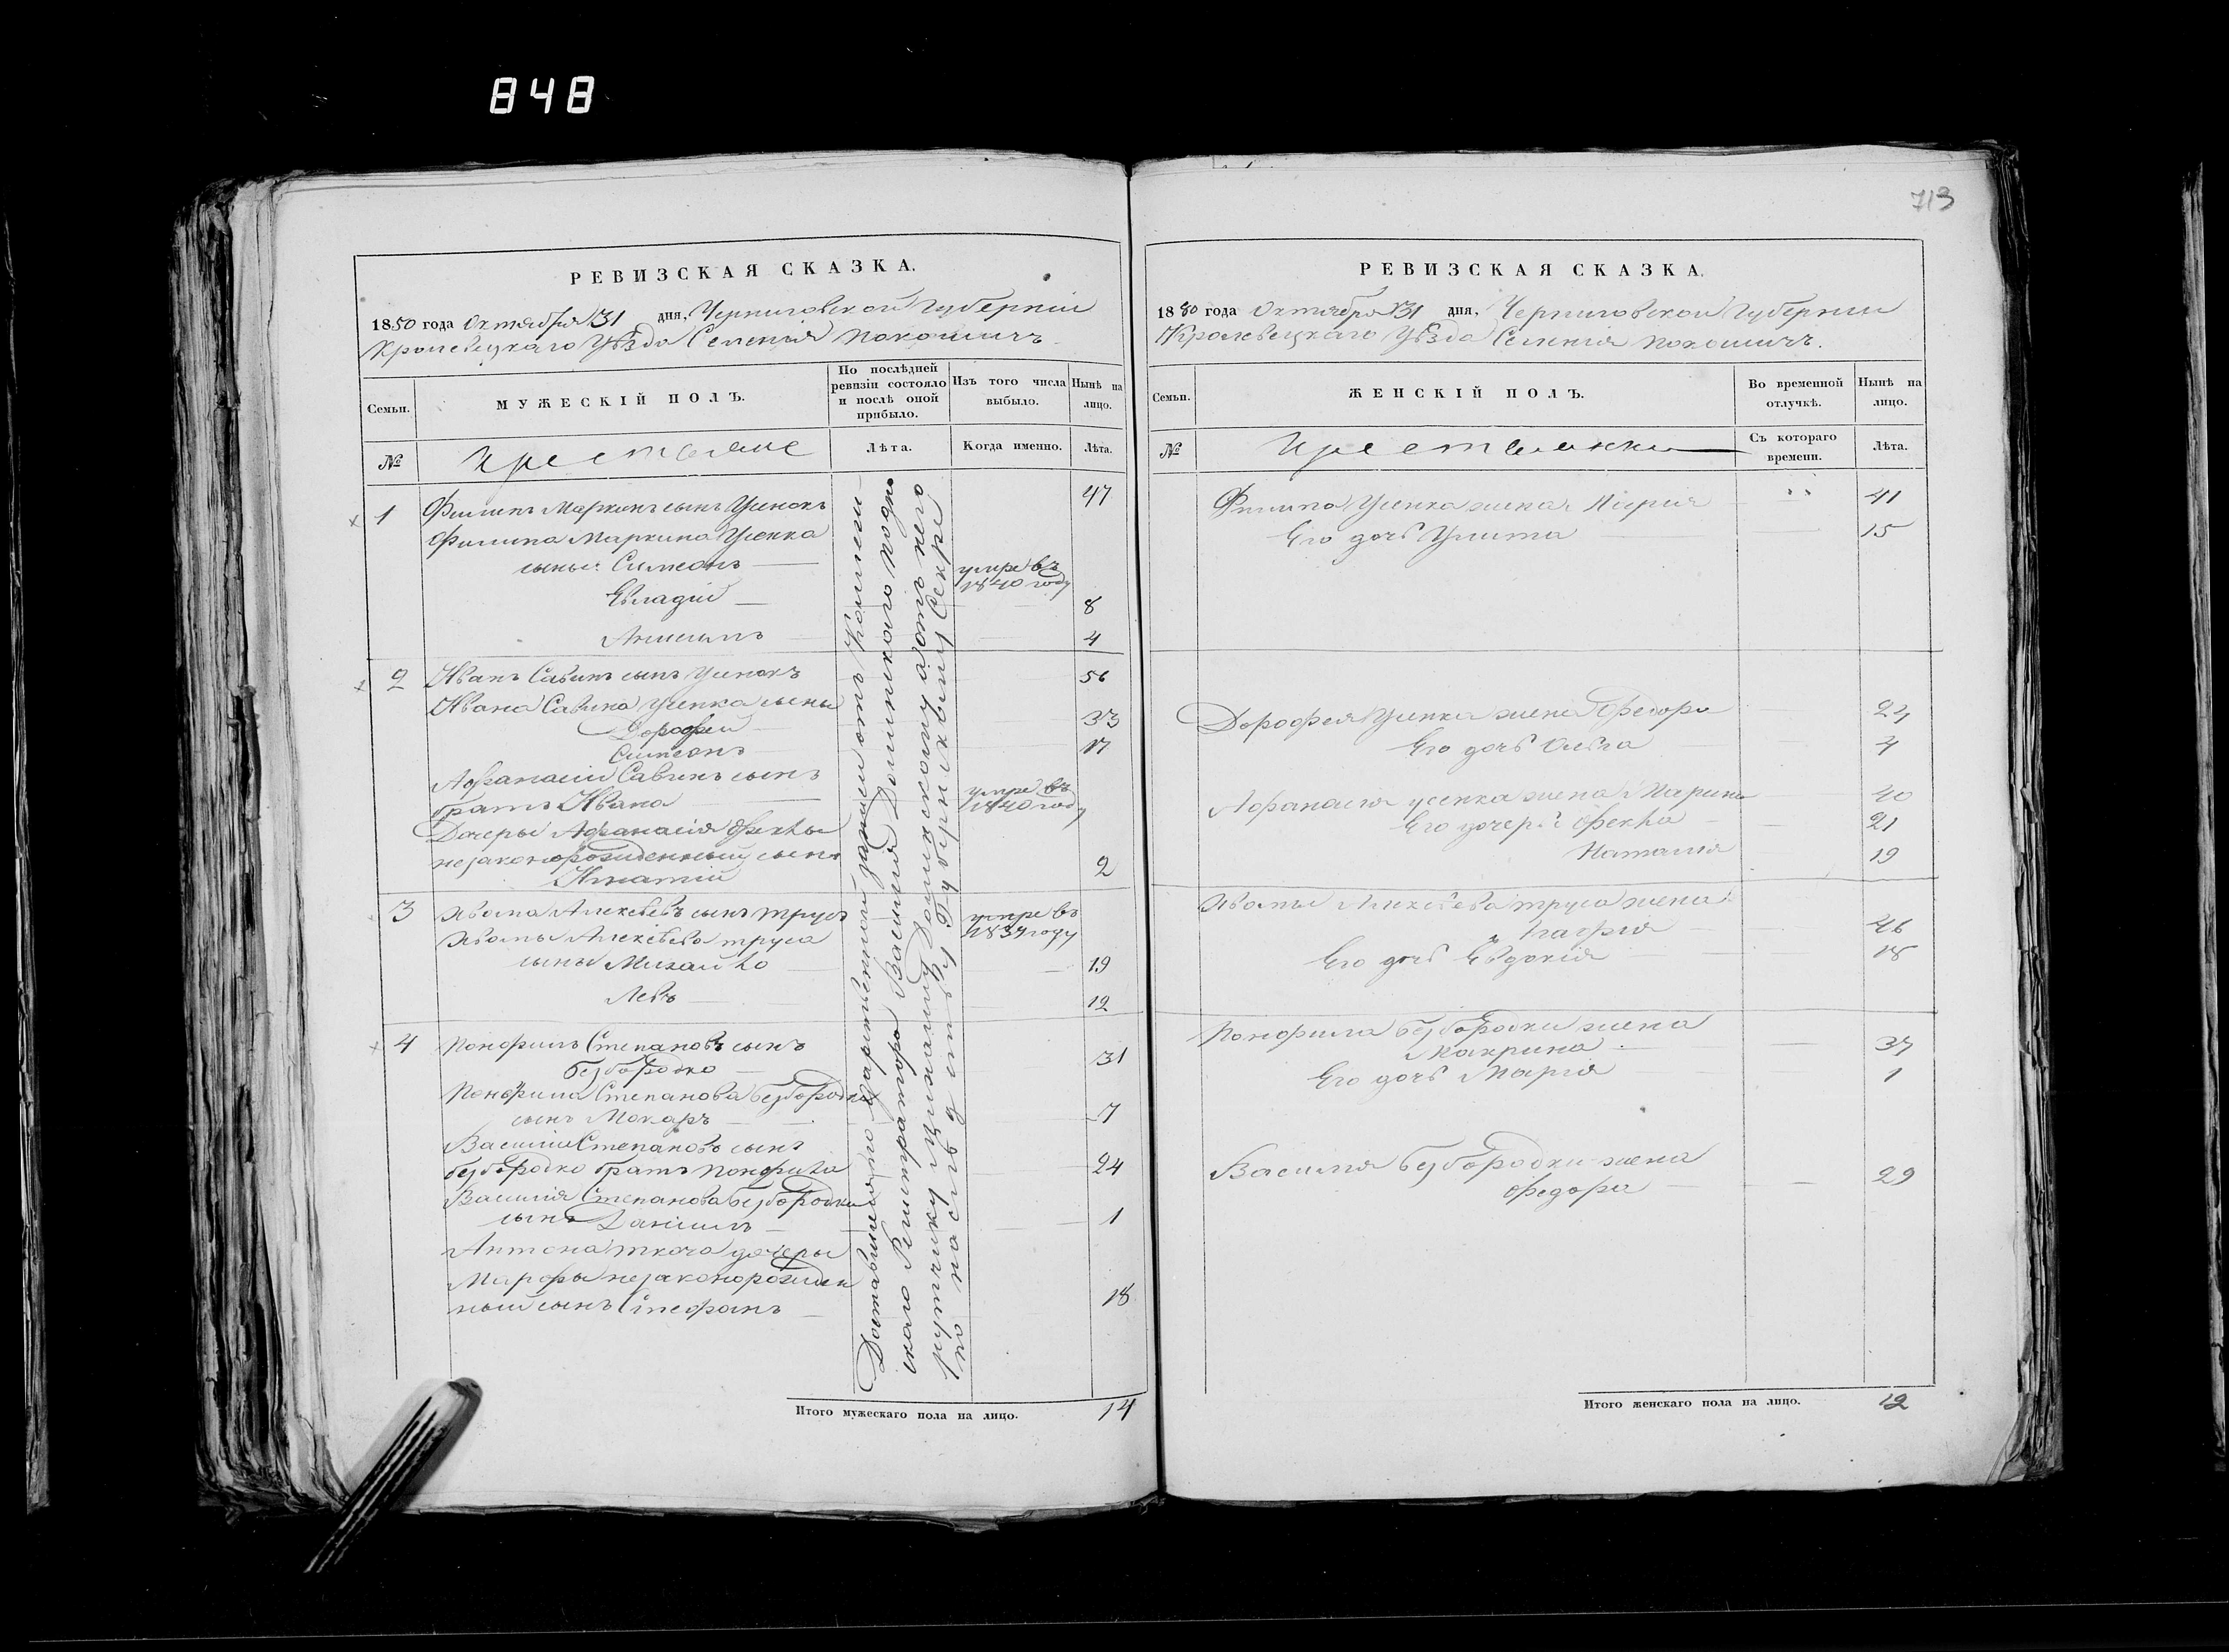 848
713
РЕВИЗСКАЯ СКАЗКА.
1850 года Октября 31 дня, Черниговской Губерніи
Кролевецкаго Уѣзда Селенія Покошичъ
Семьи.
МУЖЕСКІЙ ПОЛЪ.
По послѣдней ревизіи состояло и послѣ оной прибыло.
Изъ того числа выбыло.
Нынѣ на лицо.
№
Крестьяне
Лѣта.
Когда именно.
Лѣта.
1 Филипъ Маркинъ сынъ Усенокъ 47
Филипа Маркина Усенка
сынья Симеонъ — умре въ 1840 году
Евладій — 8
Анисимъ 4
2 Иванъ Савинъ сынъ Усенокъ 56
Ивана Савина Усенка сыны
Дорофей 33
Симеонъ 17
Афанасій Савинъ сынъ
братъ Ивана умре въ 1840 году
Дочеры Афанасія Феклы
незаконорожденный сынъ
Игнатій 2
3 Алексѣевъ сынъ Трусъ умре въ 1837 году
Алексѣева Труса
сыны Михайло 19
Левъ 12
4 Понфилъ Степановъ сынъ
Безбородко 31
Понфила Степанова Безбородки
сынъ Макаръ 7
Василій Степановъ сынъ
Безбородко братъ Понфила 24
Василія Степанова Безбородки
сынъ Даніилъ 1
Антона Ткача дочеры
Марфы незаконорожден
ный сынъ Стефанъ 18
Доставшіеся по
скаго Регистратора Василія Долинскаго
Долинскому а отъ него
по наслѣдству Губернскому Секре
Итого мужескаго пола на лицо. 14
РЕВИЗСКАЯ СКАЗКА.
1850 года Октября 31 дня, Черниговской Губерніи
Кролевецкаго Уѣзда Селенія Покошичъ.
Семьи.
ЖЕНСКІЙ ПОЛЪ.
Во временной отлучкѣ.
Нынѣ на лицо.
№
Крестьянки
Съ котораго времени.
Лѣта.
Филипа Усенка жена Марія 41
Его дочь Улита 15
Дорофея Усенка жена Федора 27
Его дочь Ольга 4
Афанасія Усенка жена Марина 40
Его дочери Фекла 21
Наталія 19
Алексѣева Труса жена
46
Его дочь Евдокія 18
Понфила Безбородки жена
Макрина 37
Его дочь Марія 1
Василія Безбородки жена
Федора 29
Итого женскаго пола на лицо. 12